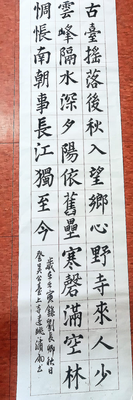 古臺搖落後秋入望鄉心野寺來人少
雲峰隔水深夕陽依舊壘寒磬滿空林
惆悵南朝事長江獨至今
歲在壬寅錄劉長卿秋日
登吳公臺上寺遠眺